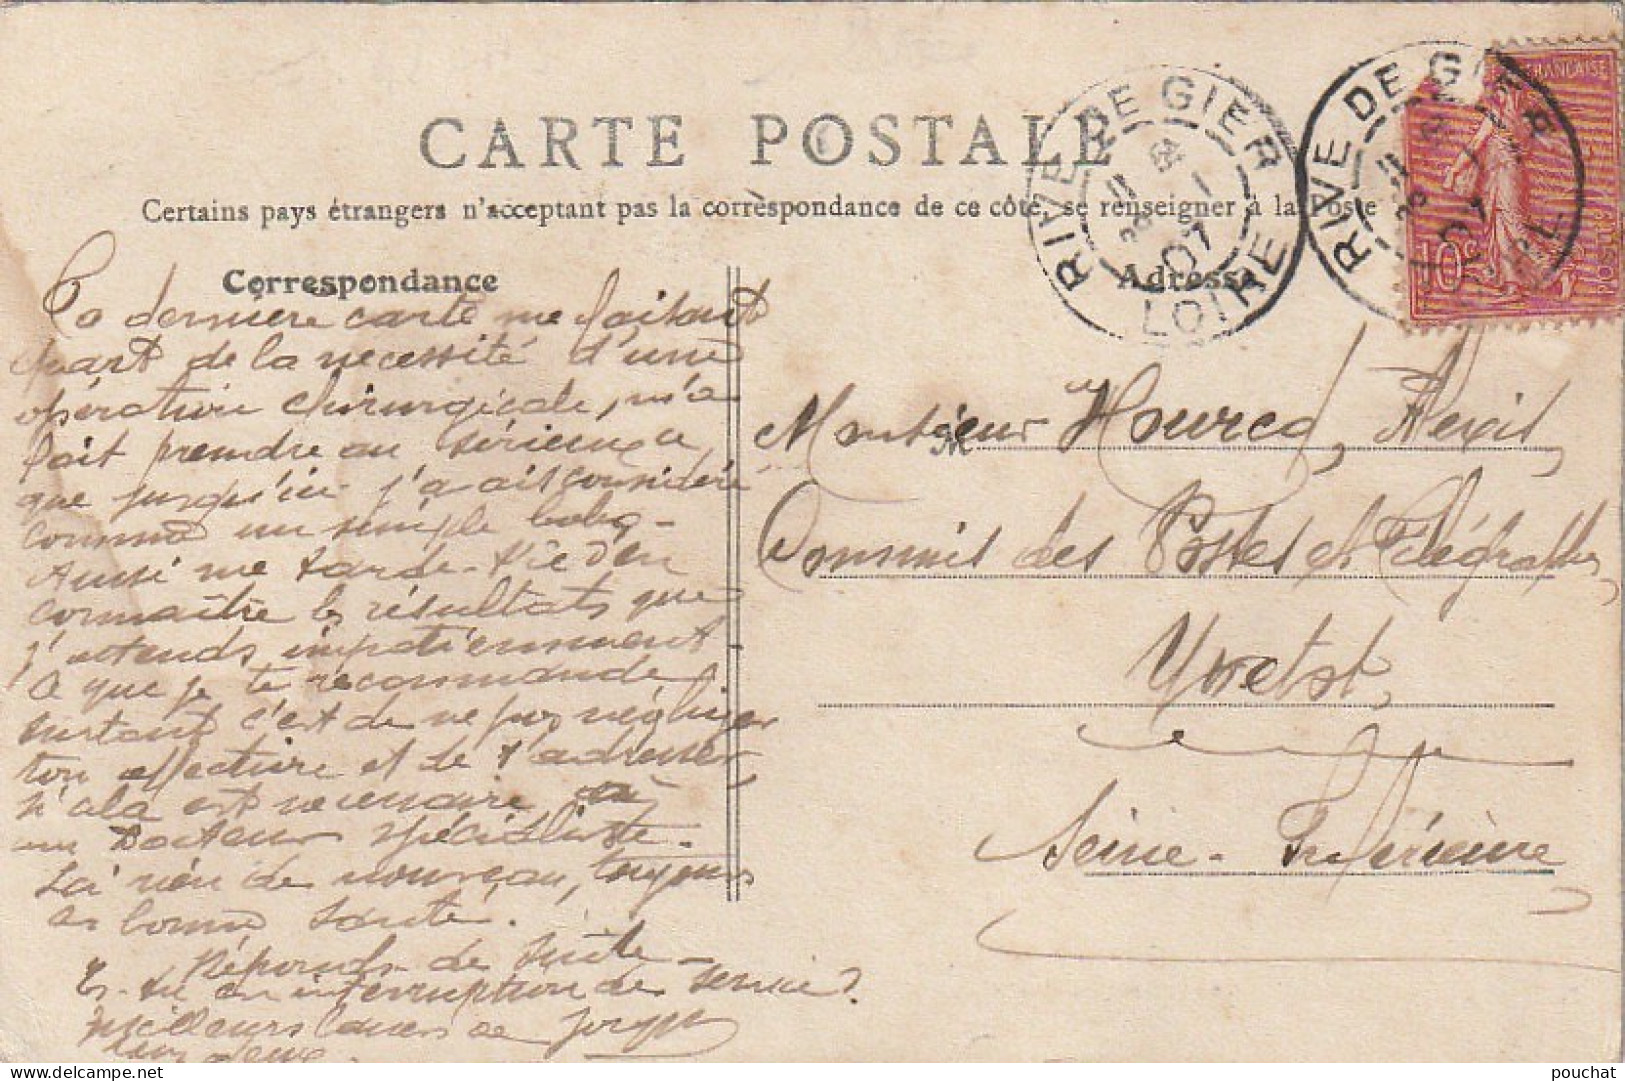 CARTE POSTALE
Certains pays étrangers n'acceptent pas la correspondance de ce côté, se renseigner à la Poste
Correspondance
Ta dernière carte me faisant
part de la necessité d'une
opération chirurgicale, m'a
fait prendre au sérieux ce
que jusqu'ici j'avais considéré
comme un simple bobo -
Aussi me tarde-t-il d'en
connaître les résultats que
j'attends impatiemment -
Ce que je te recommande
surtout c'est de ne pas négliger
ton affection et de t'adresser,
si cela est necessaire, à
un Docteur spécialiste.
Ici rien de nouveau, toujours
en bonne santé.
Réponds de suite -
Es-tu en interruption de service?
Meilleurs de
RIVE DE GIER
11 28 -1 07
LOIRE
RIVE DE GIER
11 28 -1 07
LOIRE
FRANÇAISE
10c
POSTES
Adresse
Monsieur Hourcd, Alexis,
Commis des Postes et Télégraphes,
Yvetot,
Seine-Inférieure
pouchat